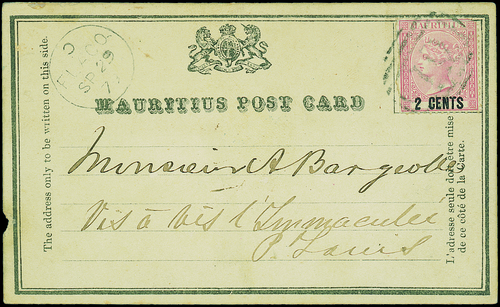 MAURITIUS
2 CENTS
MAURITIUS POST CARD
The address only to be written on this side.
Monsieur A Bargeolles
Vis à vis l'Immaculée
P. Louis
L'adresse seule doit être mise
de ce côté de la Carte.